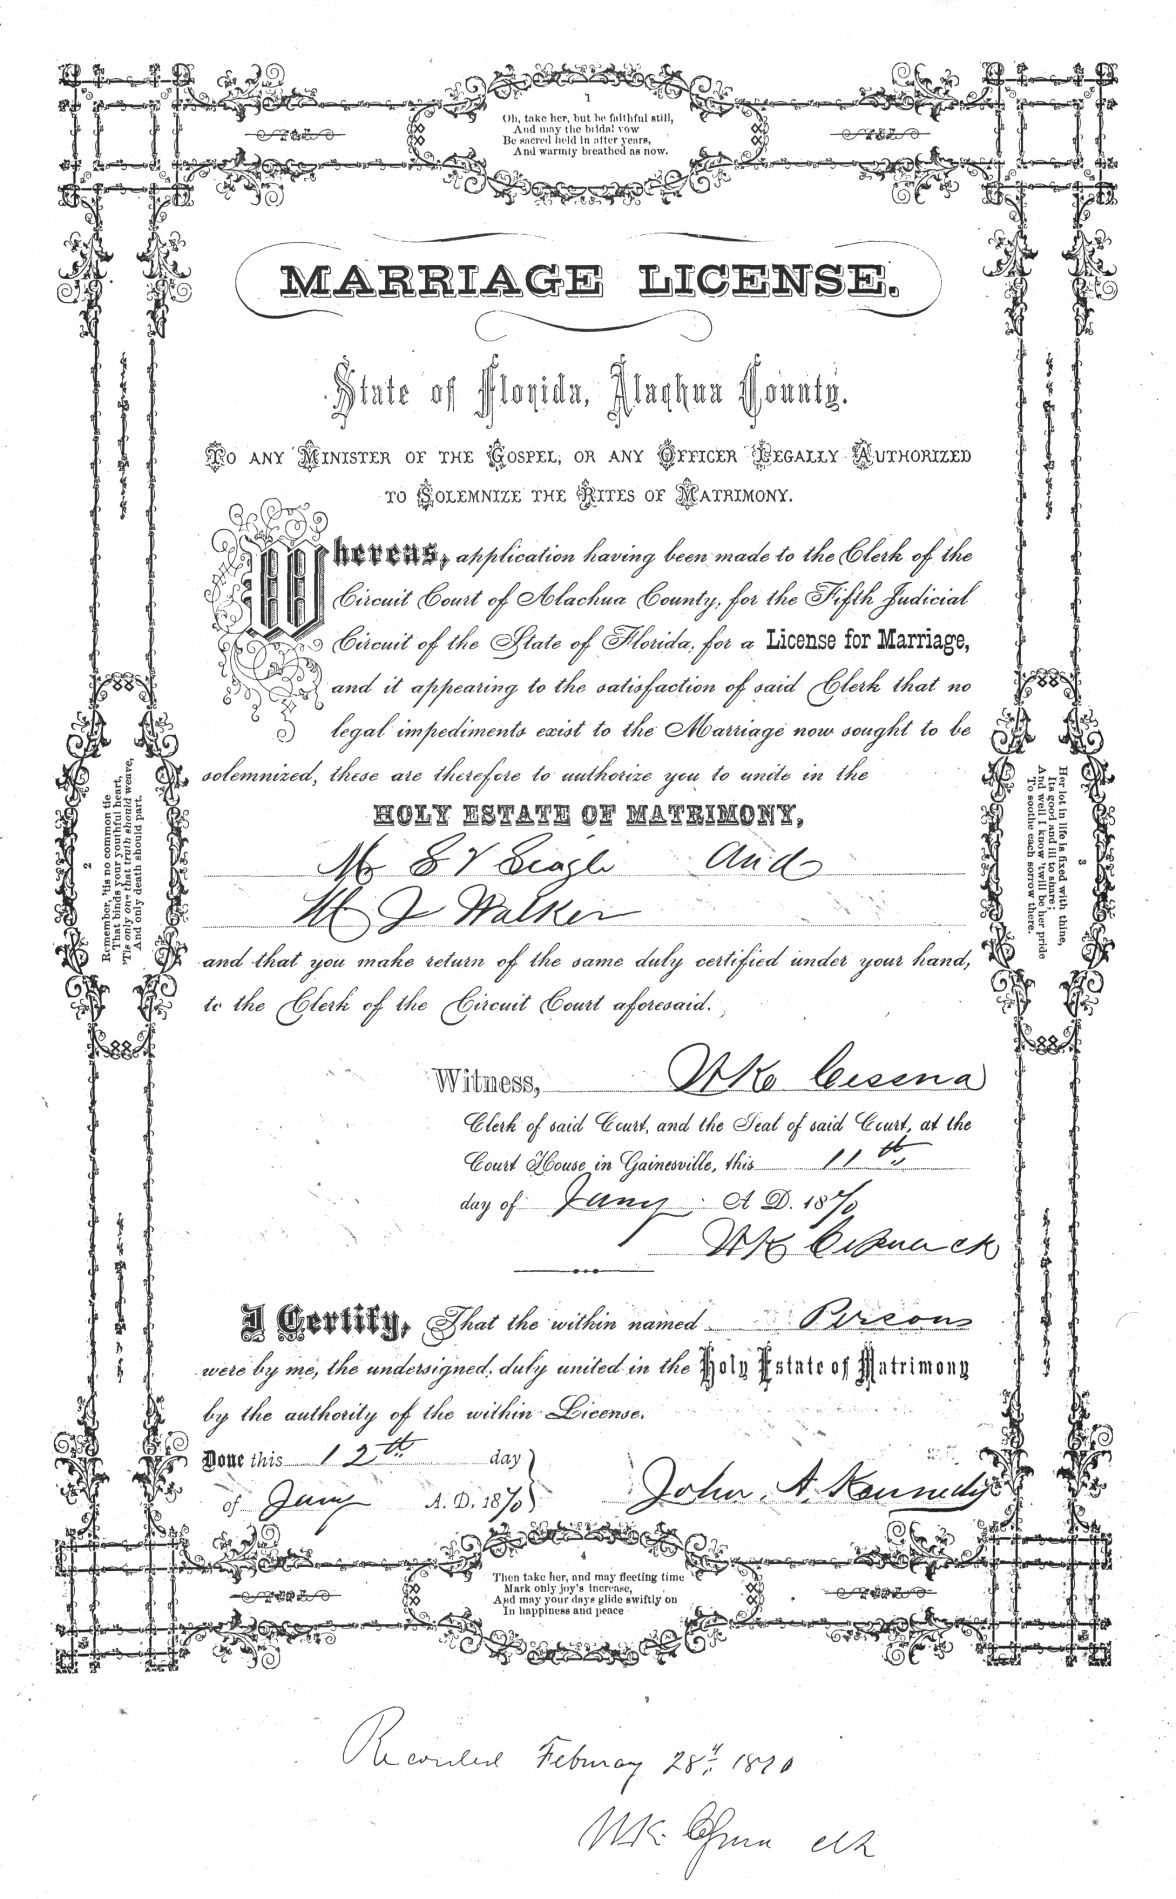 1
Oh, take her, but be faithful still,
And may the bridal vow
Be sacred held in after years,
And warmly breathed as now.
MARRIAGE LICENSE.
State of Florida, Alachua County.
TO ANY MINISTER OF THE GOSPEL, OR ANY OFFICER LEGALLY AUTHORIZED
TO SOLEMNIZE THE RITES OF MATRIMONY.
Whereas, application having been made to the Clerk of the
Circuit Court of Alachua County, for the Fifth Judicial
Circuit of the State of Florida, for a License for Marriage,
and it appearing to the satisfaction of said Clerk that no
legal impediments exist to the Marriage now sought to be
solemnized, these are therefore to authorize you to unite in the
HOLY ESTATE OF MATRIMONY,
M S V Seagle and
M J Walker
and that you make return of the same duly certified under your hand,
to the Clerk of the Circuit Court aforesaid.
Witness, W K Cessna
Clerk of said Court, and the Seal of said Court, at the
Court House in Gainesville, this 11th
day of Jany A. D. 1870
W K Cessna ck
I Certify, That the within named Persons
were by me, the undersigned, duly united in the Holy Estate of Matrimony
by the authority of the within License.
Done this 12th day
of Jany A. D. 1870
John A. Kennedy
2
Remember, 'tis no common tie
That binds your youthful heart,
'Tis only one that truth should weave,
And only death should part.
3
Her lot in life is fixed with thine,
Its good and ill to share;
And well I know 'twill be her pride
To soothe each sorrow there.
4
Then take her, and may fleeting time
Mark only joy's increase,
And may your days glide swiftly on
In happiness and peace
Recorded February 28th 1870
W.K. Cessna clk